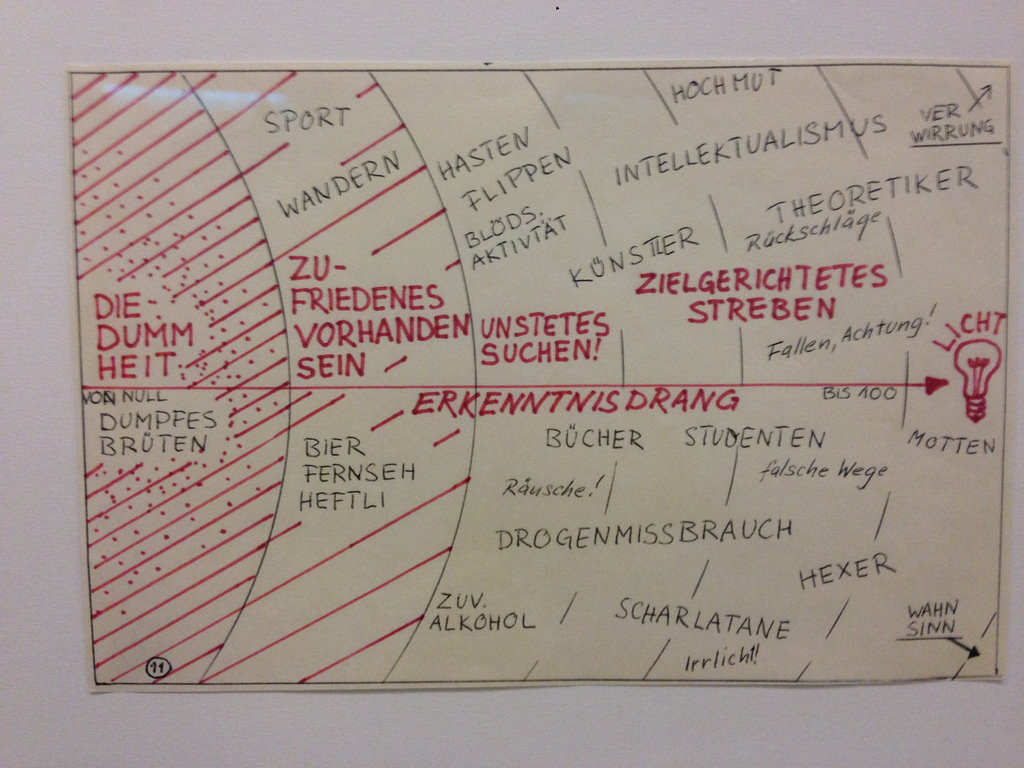 SPORT
WANDERN
HASTEN
FLIPPEN
BLÖDS.
AKTIVTÄT
HOCHMUT
INTELLEKTUALISMUS
VER
WIRRUNG
THEORETIKER
Rückschläge
KÜNSTLER
DIE
DUMM
HEIT
ZU-
FRIEDENES
VORHANDEN
SEIN
UNSTETES
SUCHEN!
ZIELGERICHTETES
STREBEN
Fallen, Achtung!
LICHT
VON NULL
ERKENNTNISDRANG
BIS 100
DUMPFES
BRÜTEN
BIER
FERNSEH
HEFTLI
BÜCHER
STUDENTEN
MOTTEN
falsche Wege
Räusche!
DROGENMISSBRAUCH
HEXER
ZUV.
ALKOHOL
SCHARLATANE
Irrlicht!
WAHN
SINN
11